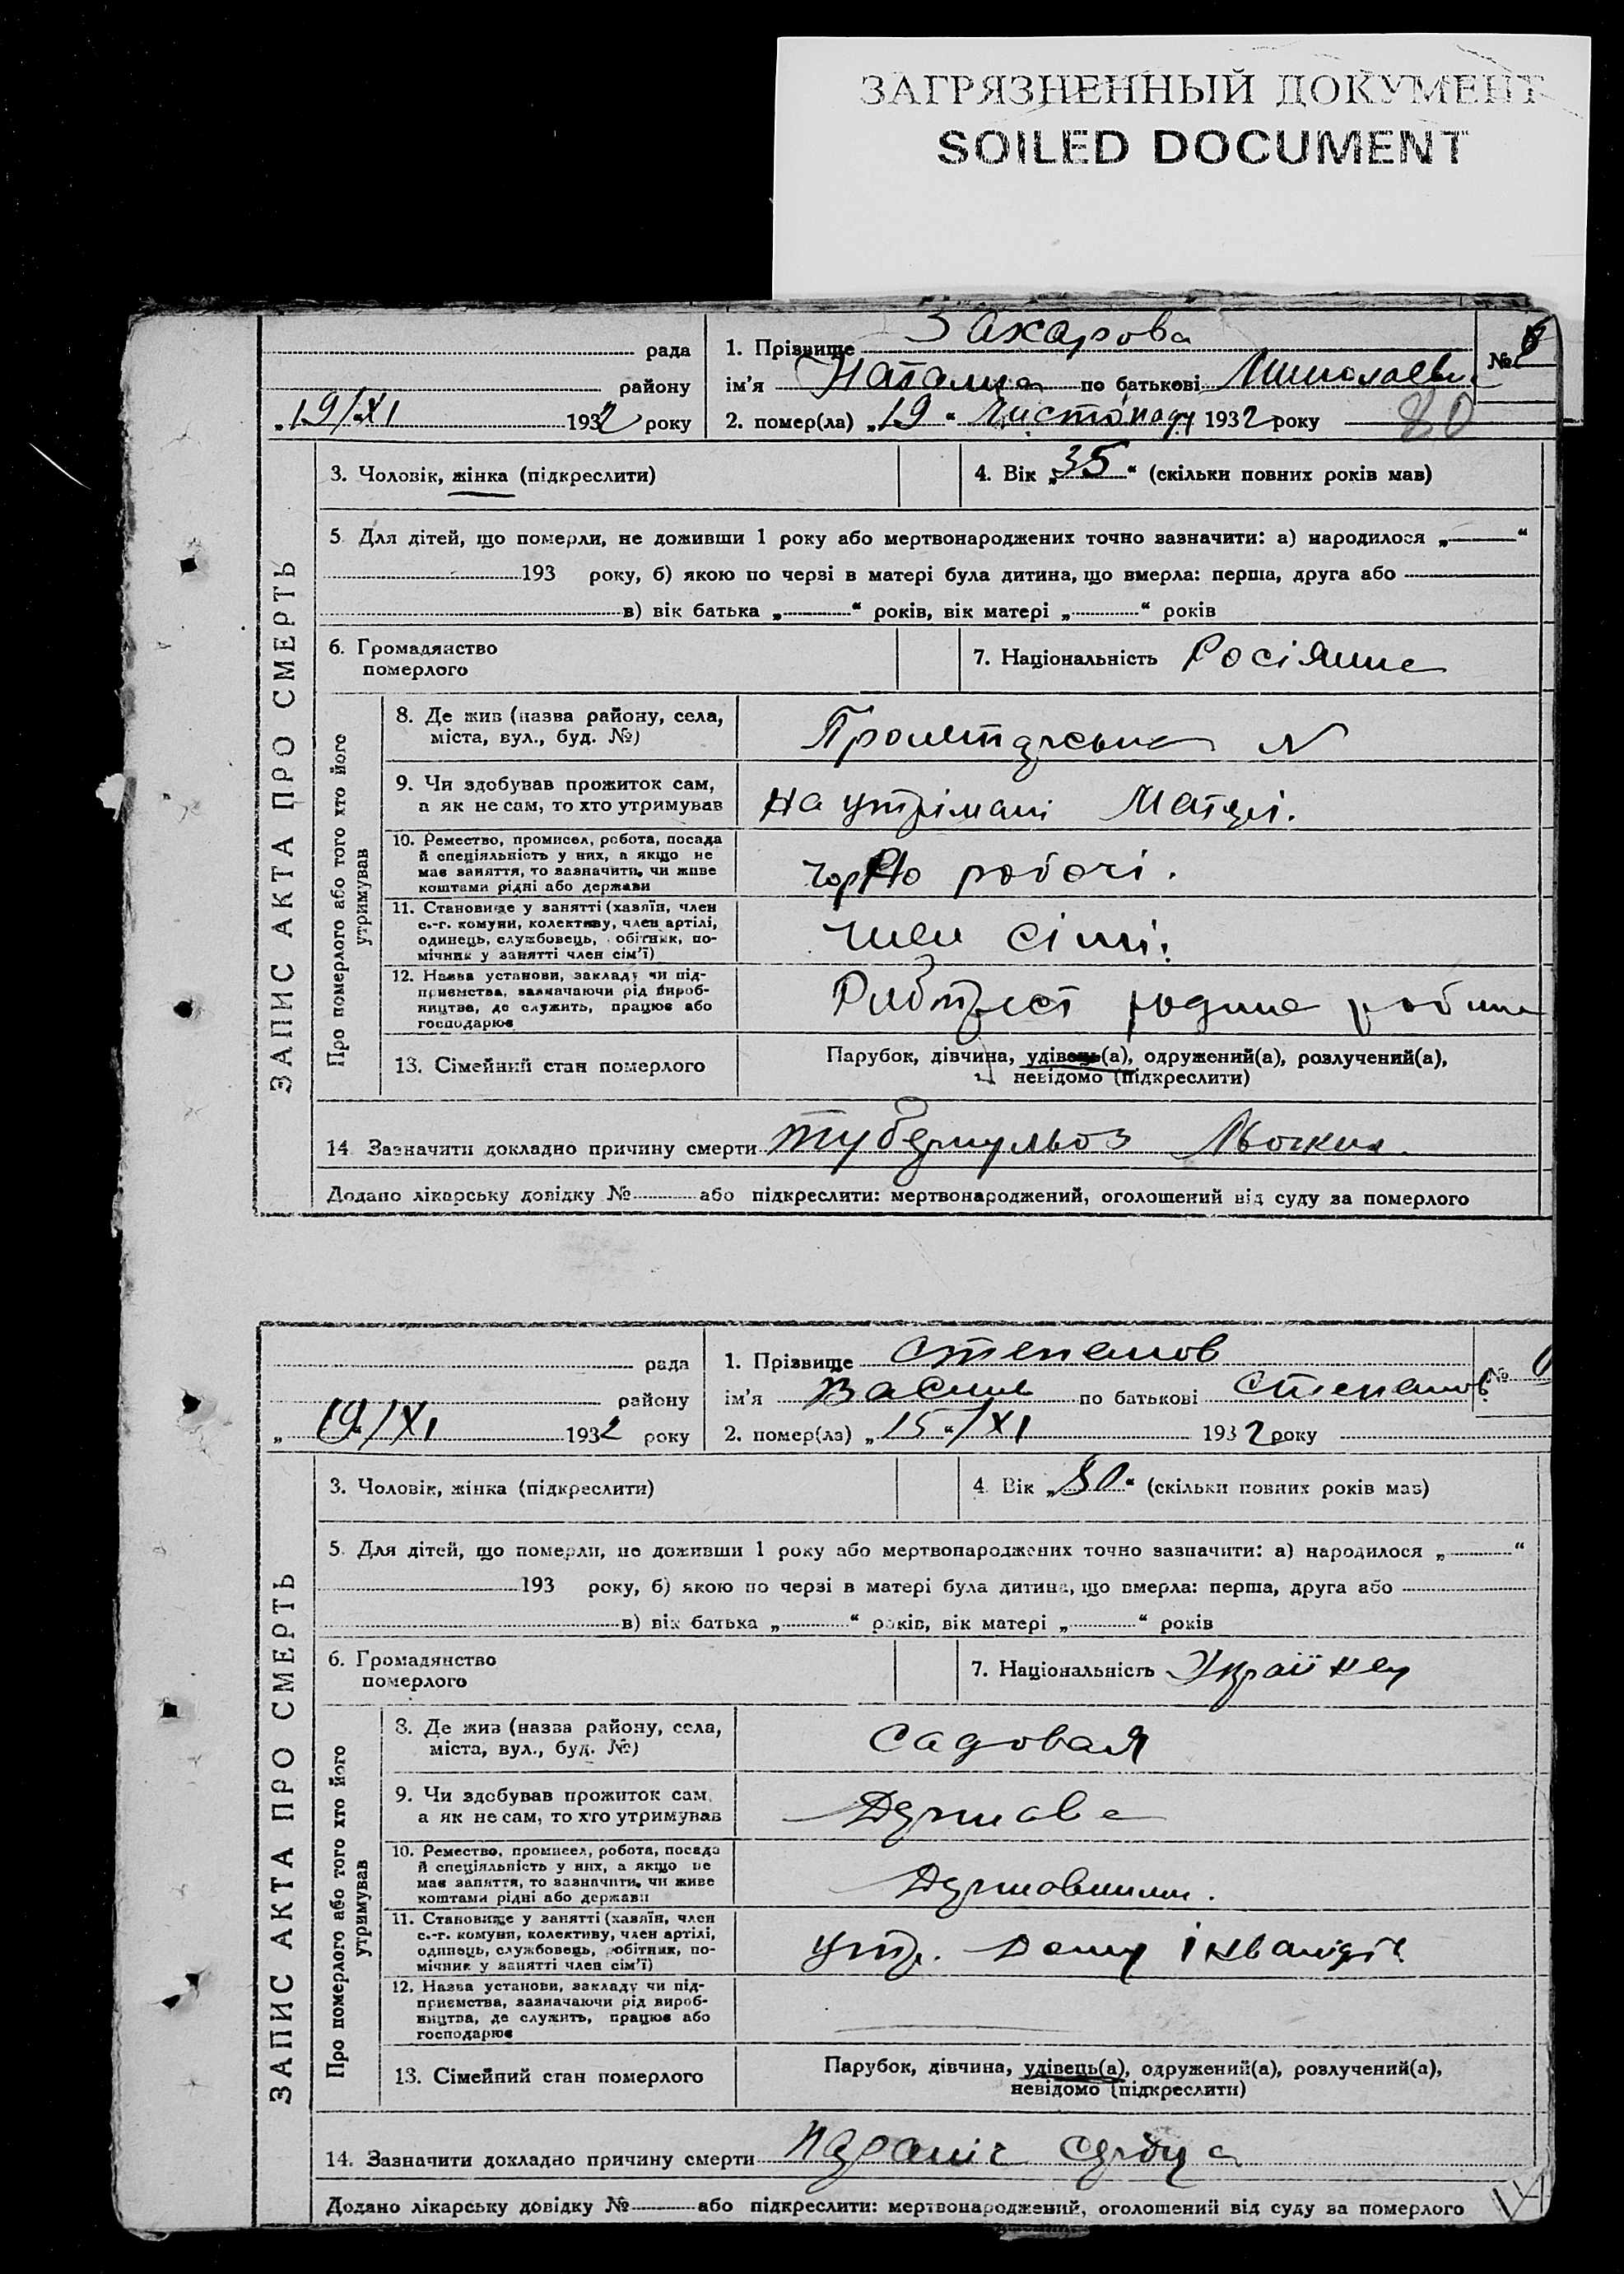 ЗАГРЯЗНЕННЫЙ ДОКУМЕНТ
SOILED DOCUMENT
ЗАПИС АКТА ПРО СМЕРТЬ
рада
району
„19/XI 1932 року
1. Прізвище Захарова
№
ім'я Наталия по батькові Миколаевн
2. помер(ла) „19“ Листопаду 1932 року
80
3. Чоловік, жінка (підкреслити)
4. Вік „35“ (скільки повних років мав)
5. Для дітей, що померли, не доживши 1 року або мертвонароджених точно зазначити: а) народилося „ “
193 року, б) якою по черзі в матері була дитина, що вмерла: перша, друга або
в) вік батька „ “ років, вік матері „ “ років
6. Громадянство
померлого
7. Національність Росіянка
Про померлого або того хто його
утримував
8. Де жив (назва району, села,
міста, вул., буд. №)
Пролетарська N
9. Чи здобував прожиток сам,
а як не сам, то хто утримував
На утрімані Матері.
10. Ремество, промисел, робота, посада
й спеціяльність у них, а якщо не
має заняття, то зазначити, чи живе
коштами рідні або держави
чорно робочі.
11. Становище у занятті (хазяїн, член
с.-г. комуни, колективу, член артілі,
одинець, службовець, робітник, по-
мічник у занятті член сім'ї)
член сімї.
12. Назва установи, закладу чи під-
приємства, зазначаючи рід вироб-
ництва, де служить, працює або
господарює
13. Сімейний стан померлого
Парубок, дівчина, удівець(а), одружений(а), розлучений(а),
невідомо (підкреслити)
14. Зазначити докладно причину смерти туберкульоз
Додано лікарську довідку № або підкреслити: мертвонароджений, оголошений від суду за померлого
ЗАПИС АКТА ПРО СМЕРТЬ
рада
району
„19“/XI 1932 року
1. Прізвище Степанов
№
ім'я Василь по батькові Степанов
2. помер(ла) „15“/XI 1932 року
3. Чоловік, жінка (підкреслити)
4. Вік „80“ (скільки повних років мав)
5. Для дітей, що померли, не доживши 1 року або мертвонароджених точно зазначити: а) народилося „ “
193 року, б) якою по черзі в матері була дитина, що вмерла: перша, друга або
в) вік батька „ “ років, вік матері „ “ років
6. Громадянство
померлого
7. Національність
Про померлого або того хто його
утримував
8. Де жив (назва району, села,
міста, вул., буд. №)
Садовая
9. Чи здобував прожиток сам,
а як не сам, то хто утримував
Держава
10. Ремество, промисел, робота, посада
й спеціяльність у них, а якщо не
має заняття, то зазначити, чи живе
коштами рідні або держави
11. Становище у занятті (хазяїн, член
с.-г. комуни, колективу, член артілі,
одинець, службовець, робітник, по-
мічник у занятті член сім'ї)
утр. Дому інвалідів
12. Назва установи, закладу чи під-
приємства, зазначаючи рід вироб-
ництва, де служить, працює або
господарює
13. Сімейний стан померлого
Парубок, дівчина, удівець(а), одружений(а), розлучений(а),
невідомо (підкреслити)
14. Зазначити докладно причину смерти параліч серця
Додано лікарську довідку № або підкреслити: мертвонароджений, оголошений від суду за померлого